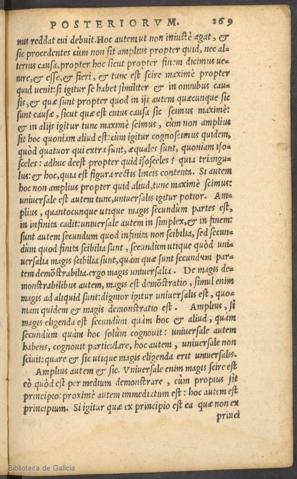 POSTERIORVM. 269
nus reddat cui debuit. Hoc autem ut non iniuste agat, &
sic procedentes cum non sit amplius propter quid, nec al-
terius causa, propter hoc sicut propter finem dicimus ue-
nire, & esse, & fieri, & tunc est scire maxime propter
quid uenit: si igitur se habet similiter & in omnibus cau-
sis, & quae sunt propter quid in ijs autem quaecunque sic
sunt causae, sicut quae est cuius causa sic scimus maxime:
& in alijs igitur tunc maxime scimus, cum non amplius
sit hoc quoniam aliud est: cum igitur cognoscimus quidem,
quòd quatuor qui extra sunt, aequales sunt, quoniam iso-
sceles: adhuc deest propter quid isosceles? quia triangu-
lus: & hoc, quia est figura rectis lineis contenta. Si autem
hoc non amplius propter quid aliud, tunc maxime scimus:
uniuersale est autem tunc, uniuersalis igitur potior. Am-
plius, quantocunque utique magis secundum partes est,
in infinita cadit: uniuersale autem in simplex, & in finem:
sunt autem secundum quod infinita non scibilia, sed secun-
dum quod finita scibilia sunt, secundum utique quòd uni-
uersalia magis scibilia sunt, quàm quae sunt secundum par-
tem demõstrabilia. ergo magis uniuersalia. De magis de-
monstrabilibus autem, magis est demõstratio, simul enim
magis ad aliquid sunt: dignior igitur uniuersalis est, quo-
niam quidem & magis demonstratio est. Amplius, si
magis eligenda est secundum quàm hoc & aliud, quàm
secundum quàm hoc solum cognouit: uniuersale autem
habens, cognouit particulare, hoc autem, uniuersale non
sciuit: quare & sic utique magis eligenda erit uniuersalis.
Amplius autem & sic. Vniuersale enim magis scire est
eò quòd est per medium demonstrare, cum propius sit
principio: proxime autem immediatum est: hoc autem est
principium. Si igitur quae ex principio est ea quae non ex
princi
Biblioteca de Galicia